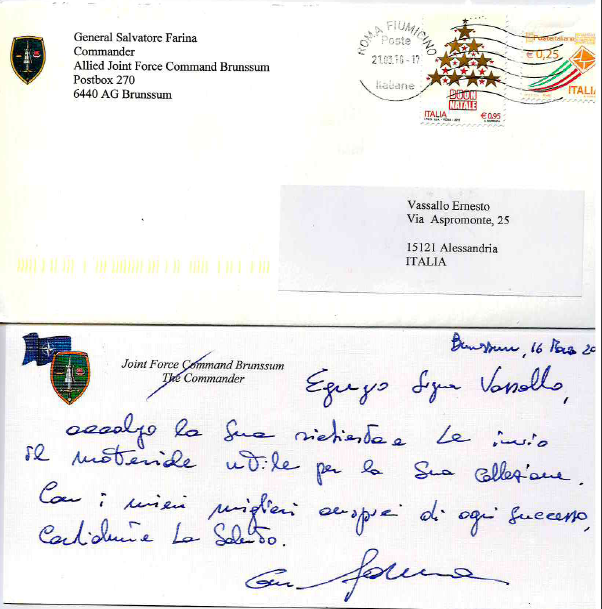 General Salvatore Farina
Commander
Allied Joint Force Command Brunssum
Postbox 270
6440 AG Brunssum
ROMA FIUMICINO
Poste
Italiane
BUON
NATALE
ITALIA €0,95
Posteitaliane
€0,25
ITALI
Vassallo Ernesto
Via Aspromonte, 25
15121 Alessandria
ITALIA
Brunssum, 16
Joint Force Command Brunssum
The Commander
Egregio Signor Vassallo,
accolgo la Sua richiesta e Le invio
il materiale utile per la Sua collezione.
Con i miei migliori auspici di ogni successo,
Cordialmente La Saluto.